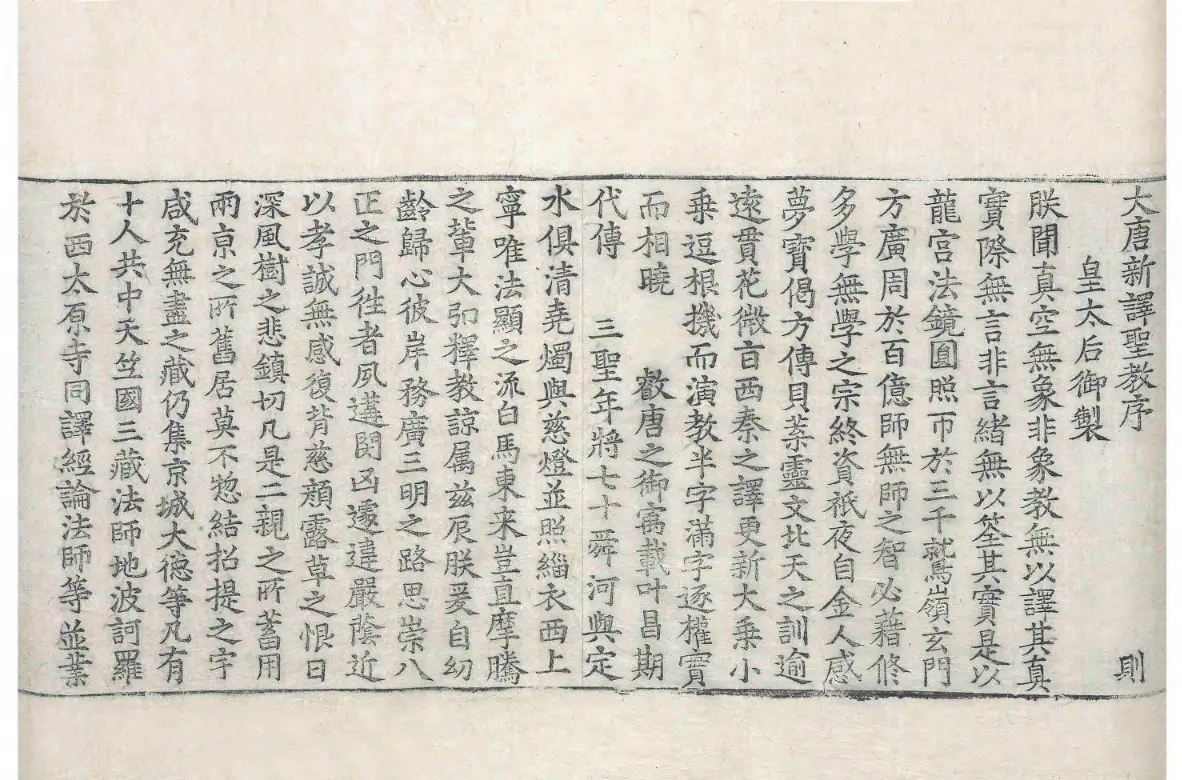 大唐新譯聖教序　則
皇太后御製
朕聞真空無象非象教無以譯其真
實際無言非言緒無以筌其實是以
龍宮法鏡圓照帀於三千鷲嶺玄門
方廣周於百億師無師之智必藉修
多學無學之宗終資祇夜自金人感
夢寶偈方傳貝葉靈文北天之訓逾
遠貫花微言西秦之譯更新大乗小
乗逗根機而演教半字滿字逐權實
而相曉　叡唐之御寓載叶昌期
代傳　三聖年將七十舜河與定
水俱清堯燭與慈燈並照緇衣西上
寧唯法顯之流白馬東来豈直摩騰
之輩大弘釋教諒属茲辰朕爰自幼
齡歸心彼岸務廣三明之路思崇八
正之門徃者夙遘閔凶遽違嚴蔭近
以孝誠無感復背慈顏露草之恨日
深風樹之悲鎮切凡是二親之所蓄用
兩京之所舊居莫不惣結招提之宇
咸充無盡之藏仍集京城大德等凡有
十人共中天竺國三藏法師地波訶羅
於西太原寺同譯經論法師等並業